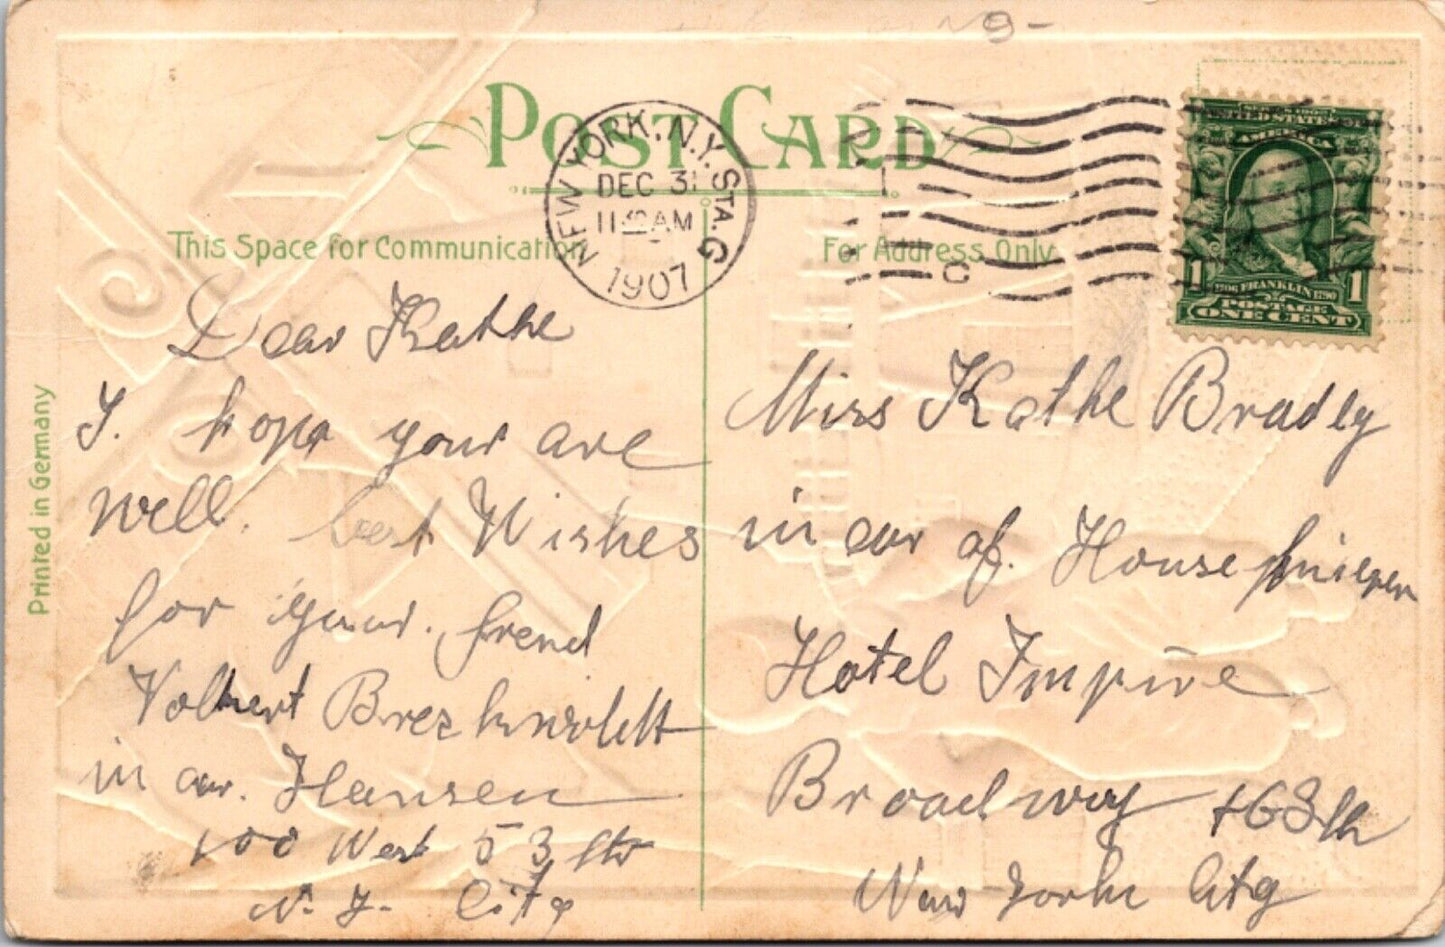 POST CARD
NEW YORK, N.Y. STA. G
DEC 31
11 AM
1907
UNITED STATES
AMERICA
1706 FRANKLIN 1790
POSTAGE
1 ONE CENT 1
This Space for Communication
For Address Only
Printed in Germany
Dear Kathe
I. hope your are
well. best Wishes
for your. frend
Volbert
in car. Hansen
100 West 53 str
N. Y. City
Miss Kathe Bradly
in car of. House
Hotel Impire
Broadway + 63 th
New York City